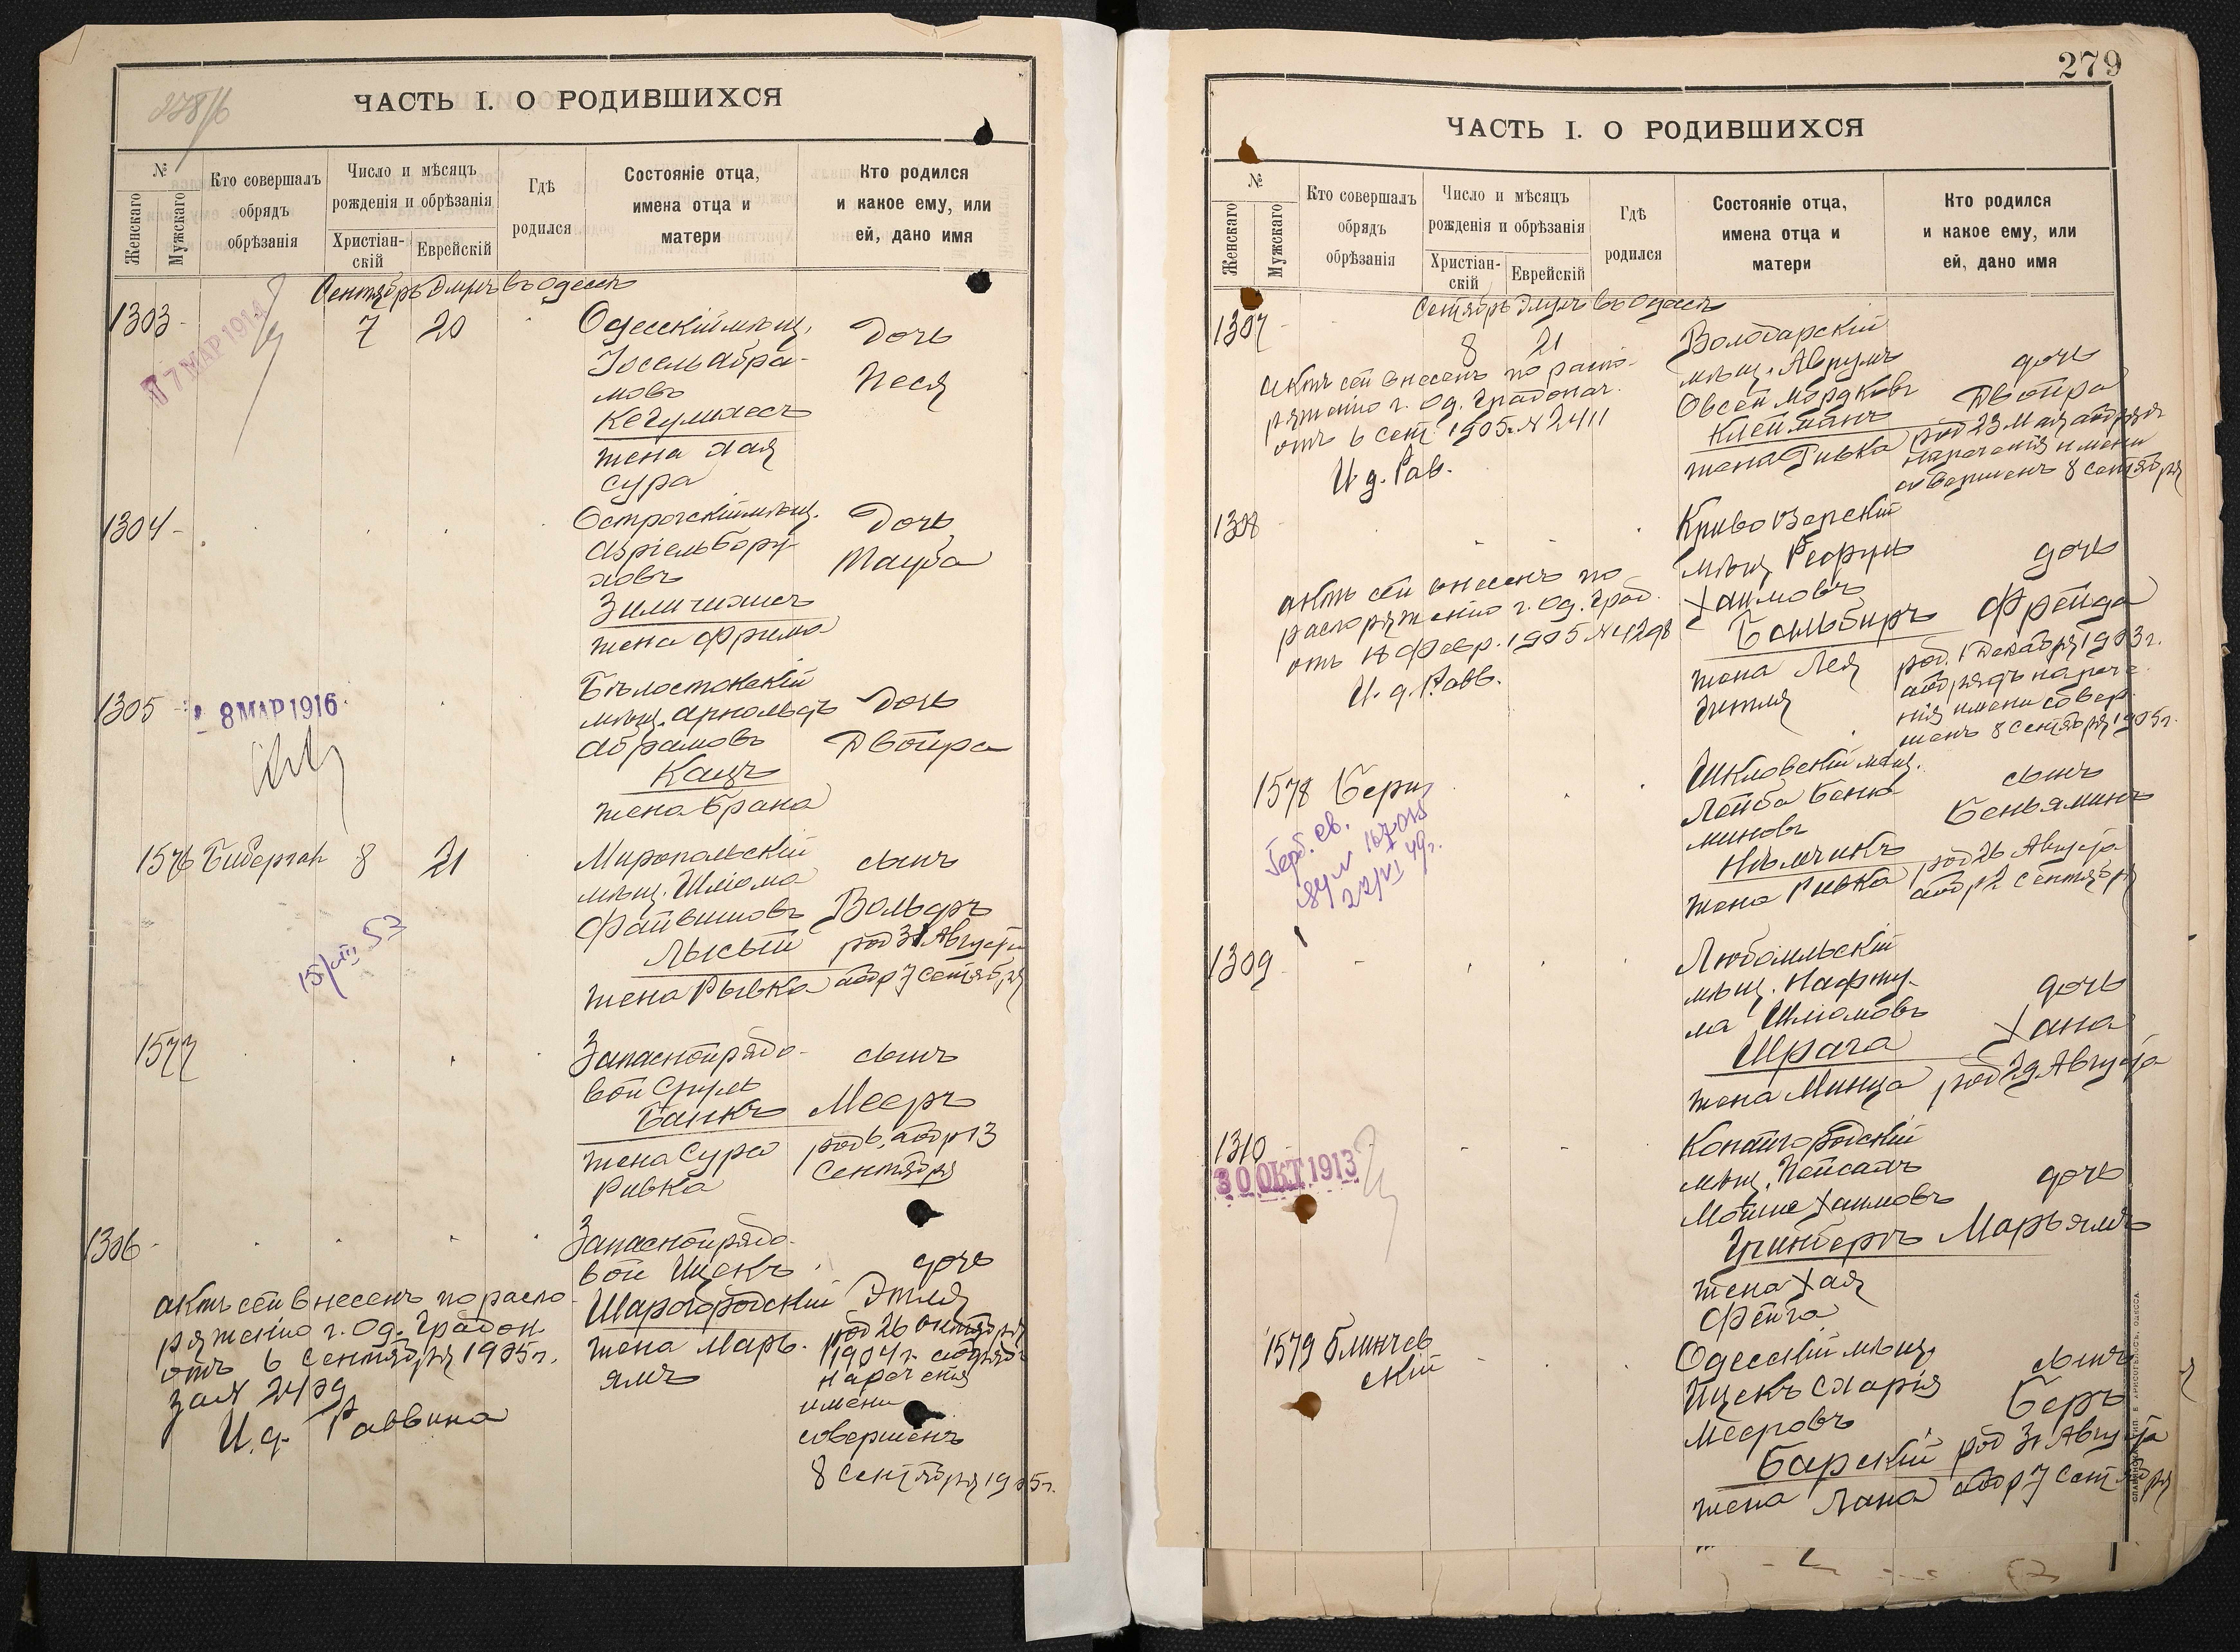 278/б
ЧАСТЬ I. О РОДИВШИХСЯ
№
Женскаго
Мужскаго
Кто совершалъ
обрядъ
обрѣзанія
Число и мѣсяцъ
рожденія и обрѣзанія
Христіан-
скій
Еврейскій
Гдѣ
родился
Состояніе отца,
имена отца и
матери
Кто родился
и какое ему, или
ей, дано имя
Сентябрь Элулъ въ Одессѣ
1303
7 МАР 1914
7
20
Одесскій мѣщ.
Іосель Абра-
мовъ
жена Хая
Сура
дочь
Песя
1304
Острогскій мѣщ.
Азріель Бору-
ховъ
жена Фрима
дочь
Тауба
1305
8 МАР 1916
Бѣлостокскій
мѣщ. Арнольдъ
Абрамовъ
Кацъ
жена Брана
дочь
Двойра
1576
Бибергал
8
21
Миропольскій
мѣщ. Шліома
Файвишовъ
Лысый
жена Рывка
сынъ
Вольфъ
род 31 Августа
обр 7 сентября
15/VIII 53
1577
Запасной рядо-
вой Сруль
Банкъ
жена Сура
Ривка
сынъ
Мееръ
род 6, обр 13
Сентября
1306
Запасной рядо-
вой Ицекъ
Шаргородскій
жена Марь-
ямъ
дочь
Этля
род 26 октября
1904 г. обрядъ
нареченія
имени
совершенъ
8 Сентября 1905 г.
актъ сей внесенъ по распо-
ряженію г. Од. Градон.
отъ 6 Сентября 1905 г.
за №
И. д. Раввина
279
ЧАСТЬ I. О РОДИВШИХСЯ
№
Женскаго
Мужскаго
Кто совершалъ
обрядъ
обрѣзанія
Число и мѣсяцъ
рожденія и обрѣзанія
Христіан-
скій
Еврейскій
Гдѣ
родился
Состояніе отца,
имена отца и
матери
Кто родился
и какое ему, или
ей, дано имя
Сентябрь Элулъ въ Одессѣ
1307
8
21
актъ сей внесенъ по распо-
ряженію г. Од. Градонач.
отъ 6 сент 1905 № 2411
И д. Рав.
Володарскій
мѣщ. Аврумъ
Овсей Мордковъ
Клейманъ
жена Ривка
дочь
Двойра
род 23 Мая обрядъ
нареченія имени
совершенъ 8 сентября
1308
актъ сей внесенъ по
распоряженію г. Од. Град.
отъ 18 Февр. 1905 № 4298
И. д. Равв.
Кривоозерскій
мѣщ Рефулъ
Хаимовъ
жена Лея
Зитля
дочь
Фрейда
род. 1 Декабря 1903 г.
обрядъ нарече-
нія имени совер-
шенъ 8 сентября 1905 г.
1578
Берш
Шкловскій мѣщ.
Лейба Беньа-
миновъ
Нѣмчикъ
жена Ривка
сынъ
Беньяминъ
род 26 Августа
обр 2 сентября
1309
Любомльскій
мѣщ. Нафту-
ла Шліомовъ
Шрага
жена Минца
дочь
Хана
род 29 Августа
1310
30 ОКТ 1913
Копайгородскій
мѣщ. Пейсахъ
Мойше Хаимовъ
Гринбергъ
жена Хая
Фейга
дочь
Марьямъ
1579
Блинчев
скій
Одесскій мѣщ.
Ицекъ Схарія
Мееровъ
Барскій
жена Хана
сынъ
Беръ
род 31 Августа
обр 7 Сентября